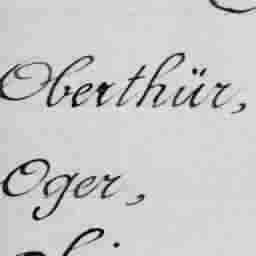 Oberthür,
Oger,